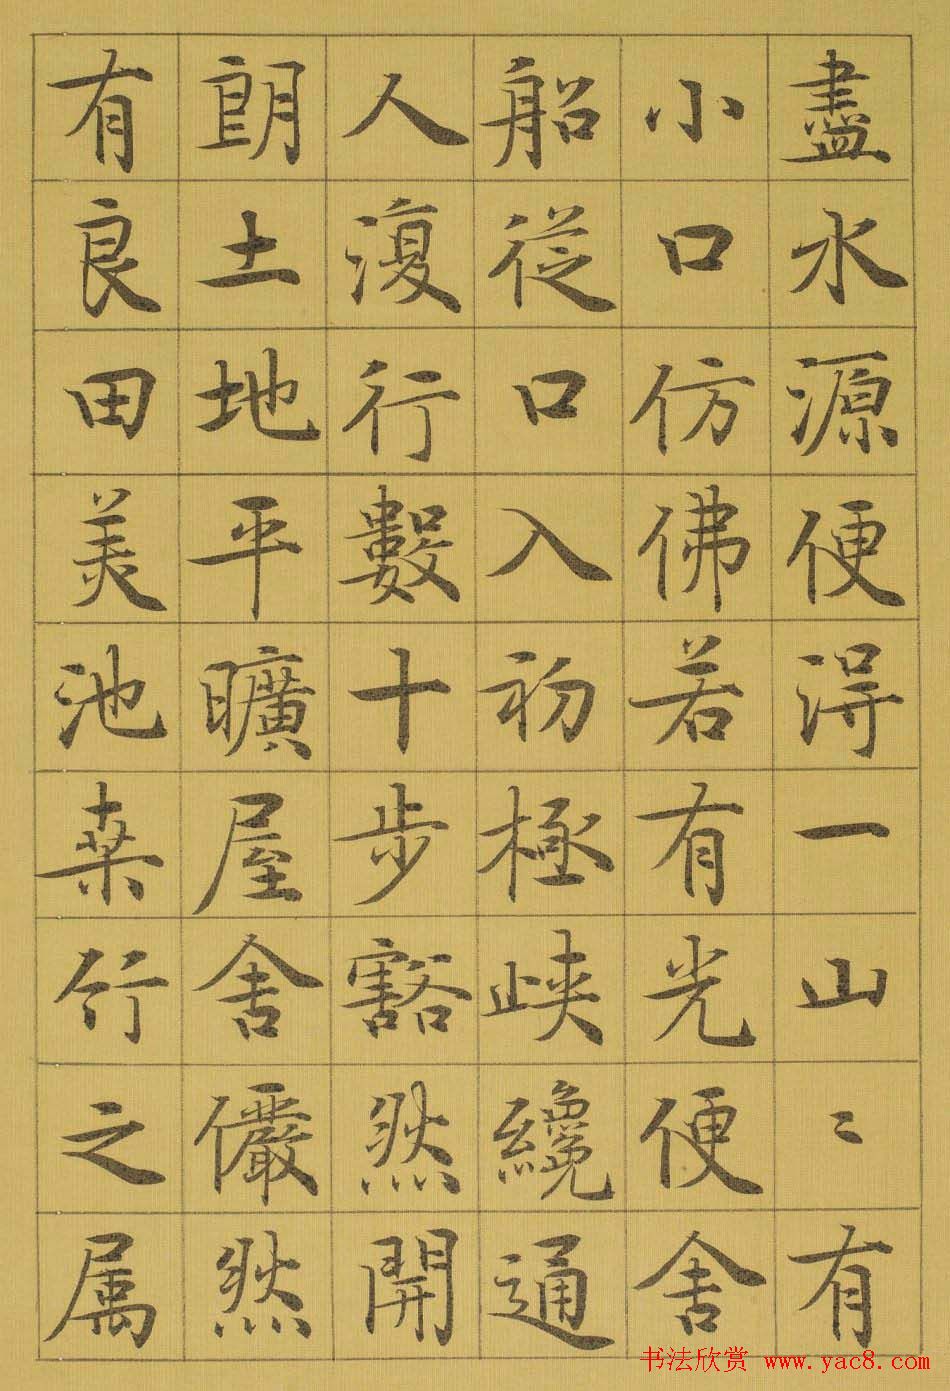 盡水源便得一山〻有
小口仿佛若有光便舍
船從口入初極峽纔通
人復行數十步豁然開
朗土地平曠屋舍儼然
有良田美池桑竹之属
书法欣赏 www.yac8.com